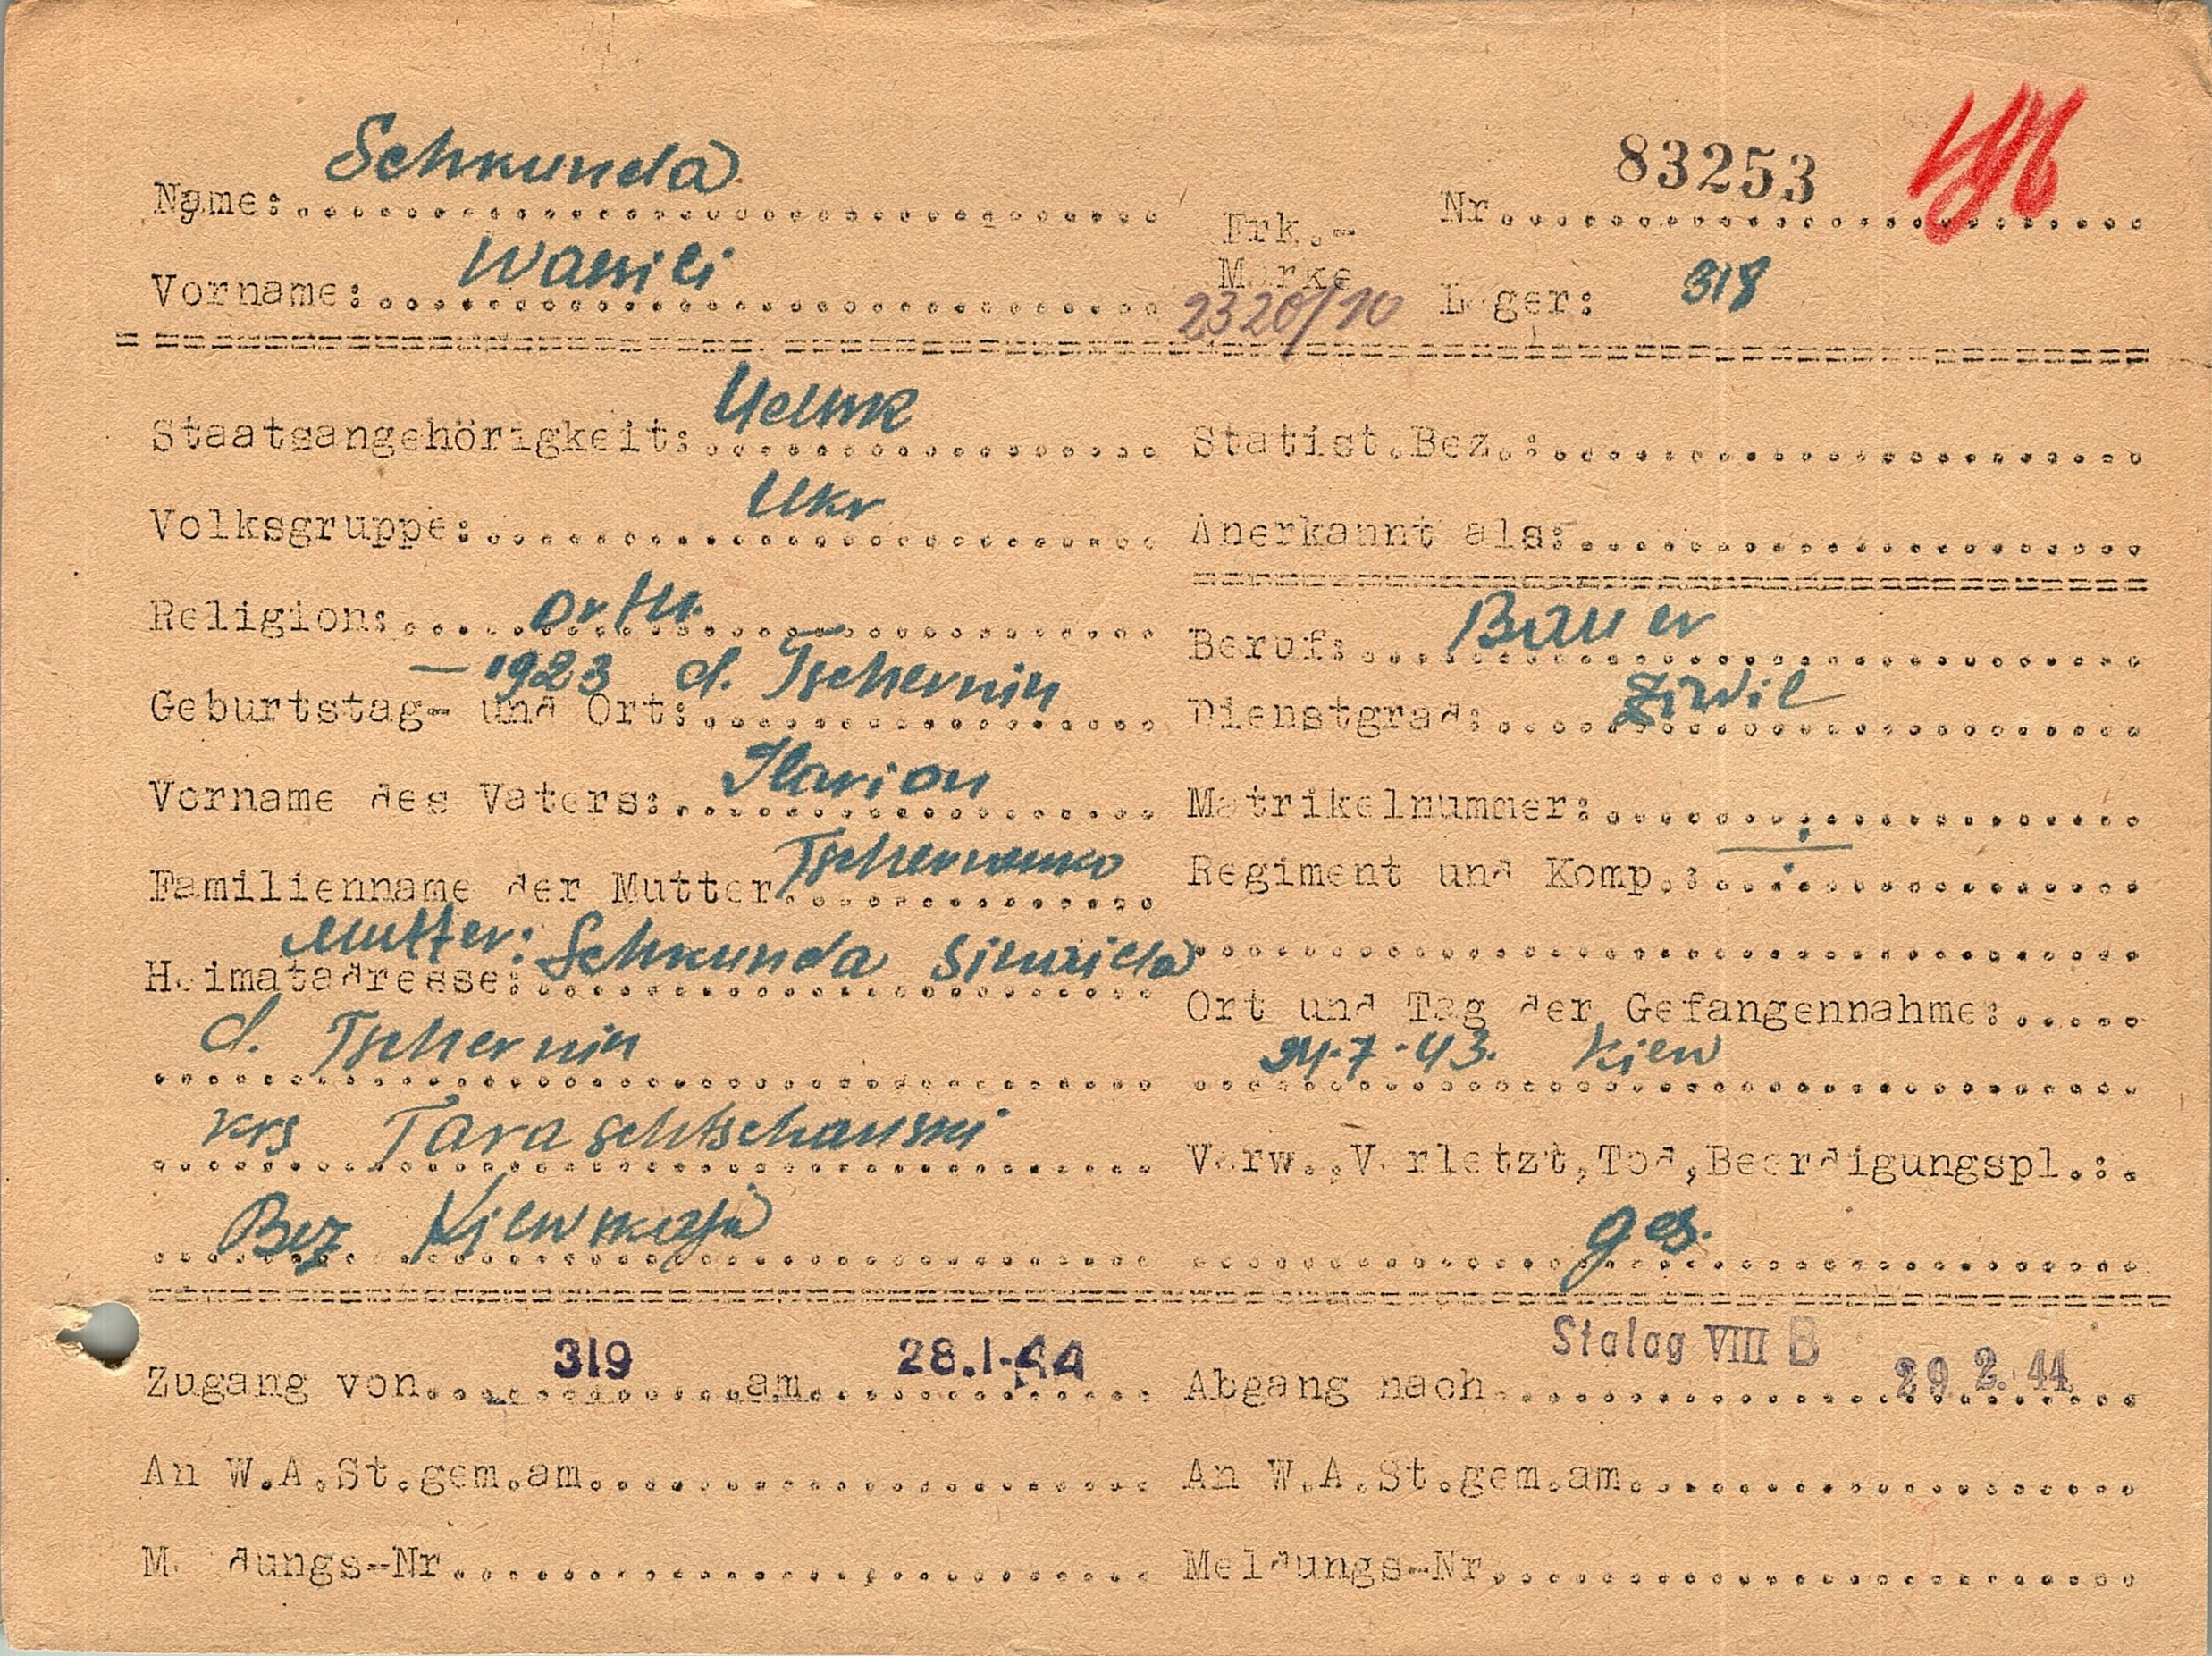 Name: Schkunda
Nr. 83253
Vorname: Wassili
Frk.-Marke 2320/10
Lager: 318
Staatsangehörigkeit:
Statist.Bez.:
Volksgruppe: Ukr
Anerkannt als:
Religion: orth.
Beruf: Bauer
Geburtstag- und Ort: – 1923 d. Tschernin
Dienstgrad: Ziwil
Vorname des Vaters: Ilarion
Matrikelnummer:
Familienname der Mutter Tschernenko
Regiment und Komp.:
Heimatadresse: Mutter: Schkunda
d. Tschernin
krs Taraschtschanski
Bez Kiewskaja
Ort und Tag der Gefangennahme:
24.7.43. Kiew
Verw.,Verletzt,Tod,Beerdigungspl.:
ges.
Zugang von 319 am 28.1.44
Abgang nach Stalag VIII B 29.2.44
An W.A.St.gem.am
An W.A.St.gem.am
Meldungs-Nr
Meldungs-Nr